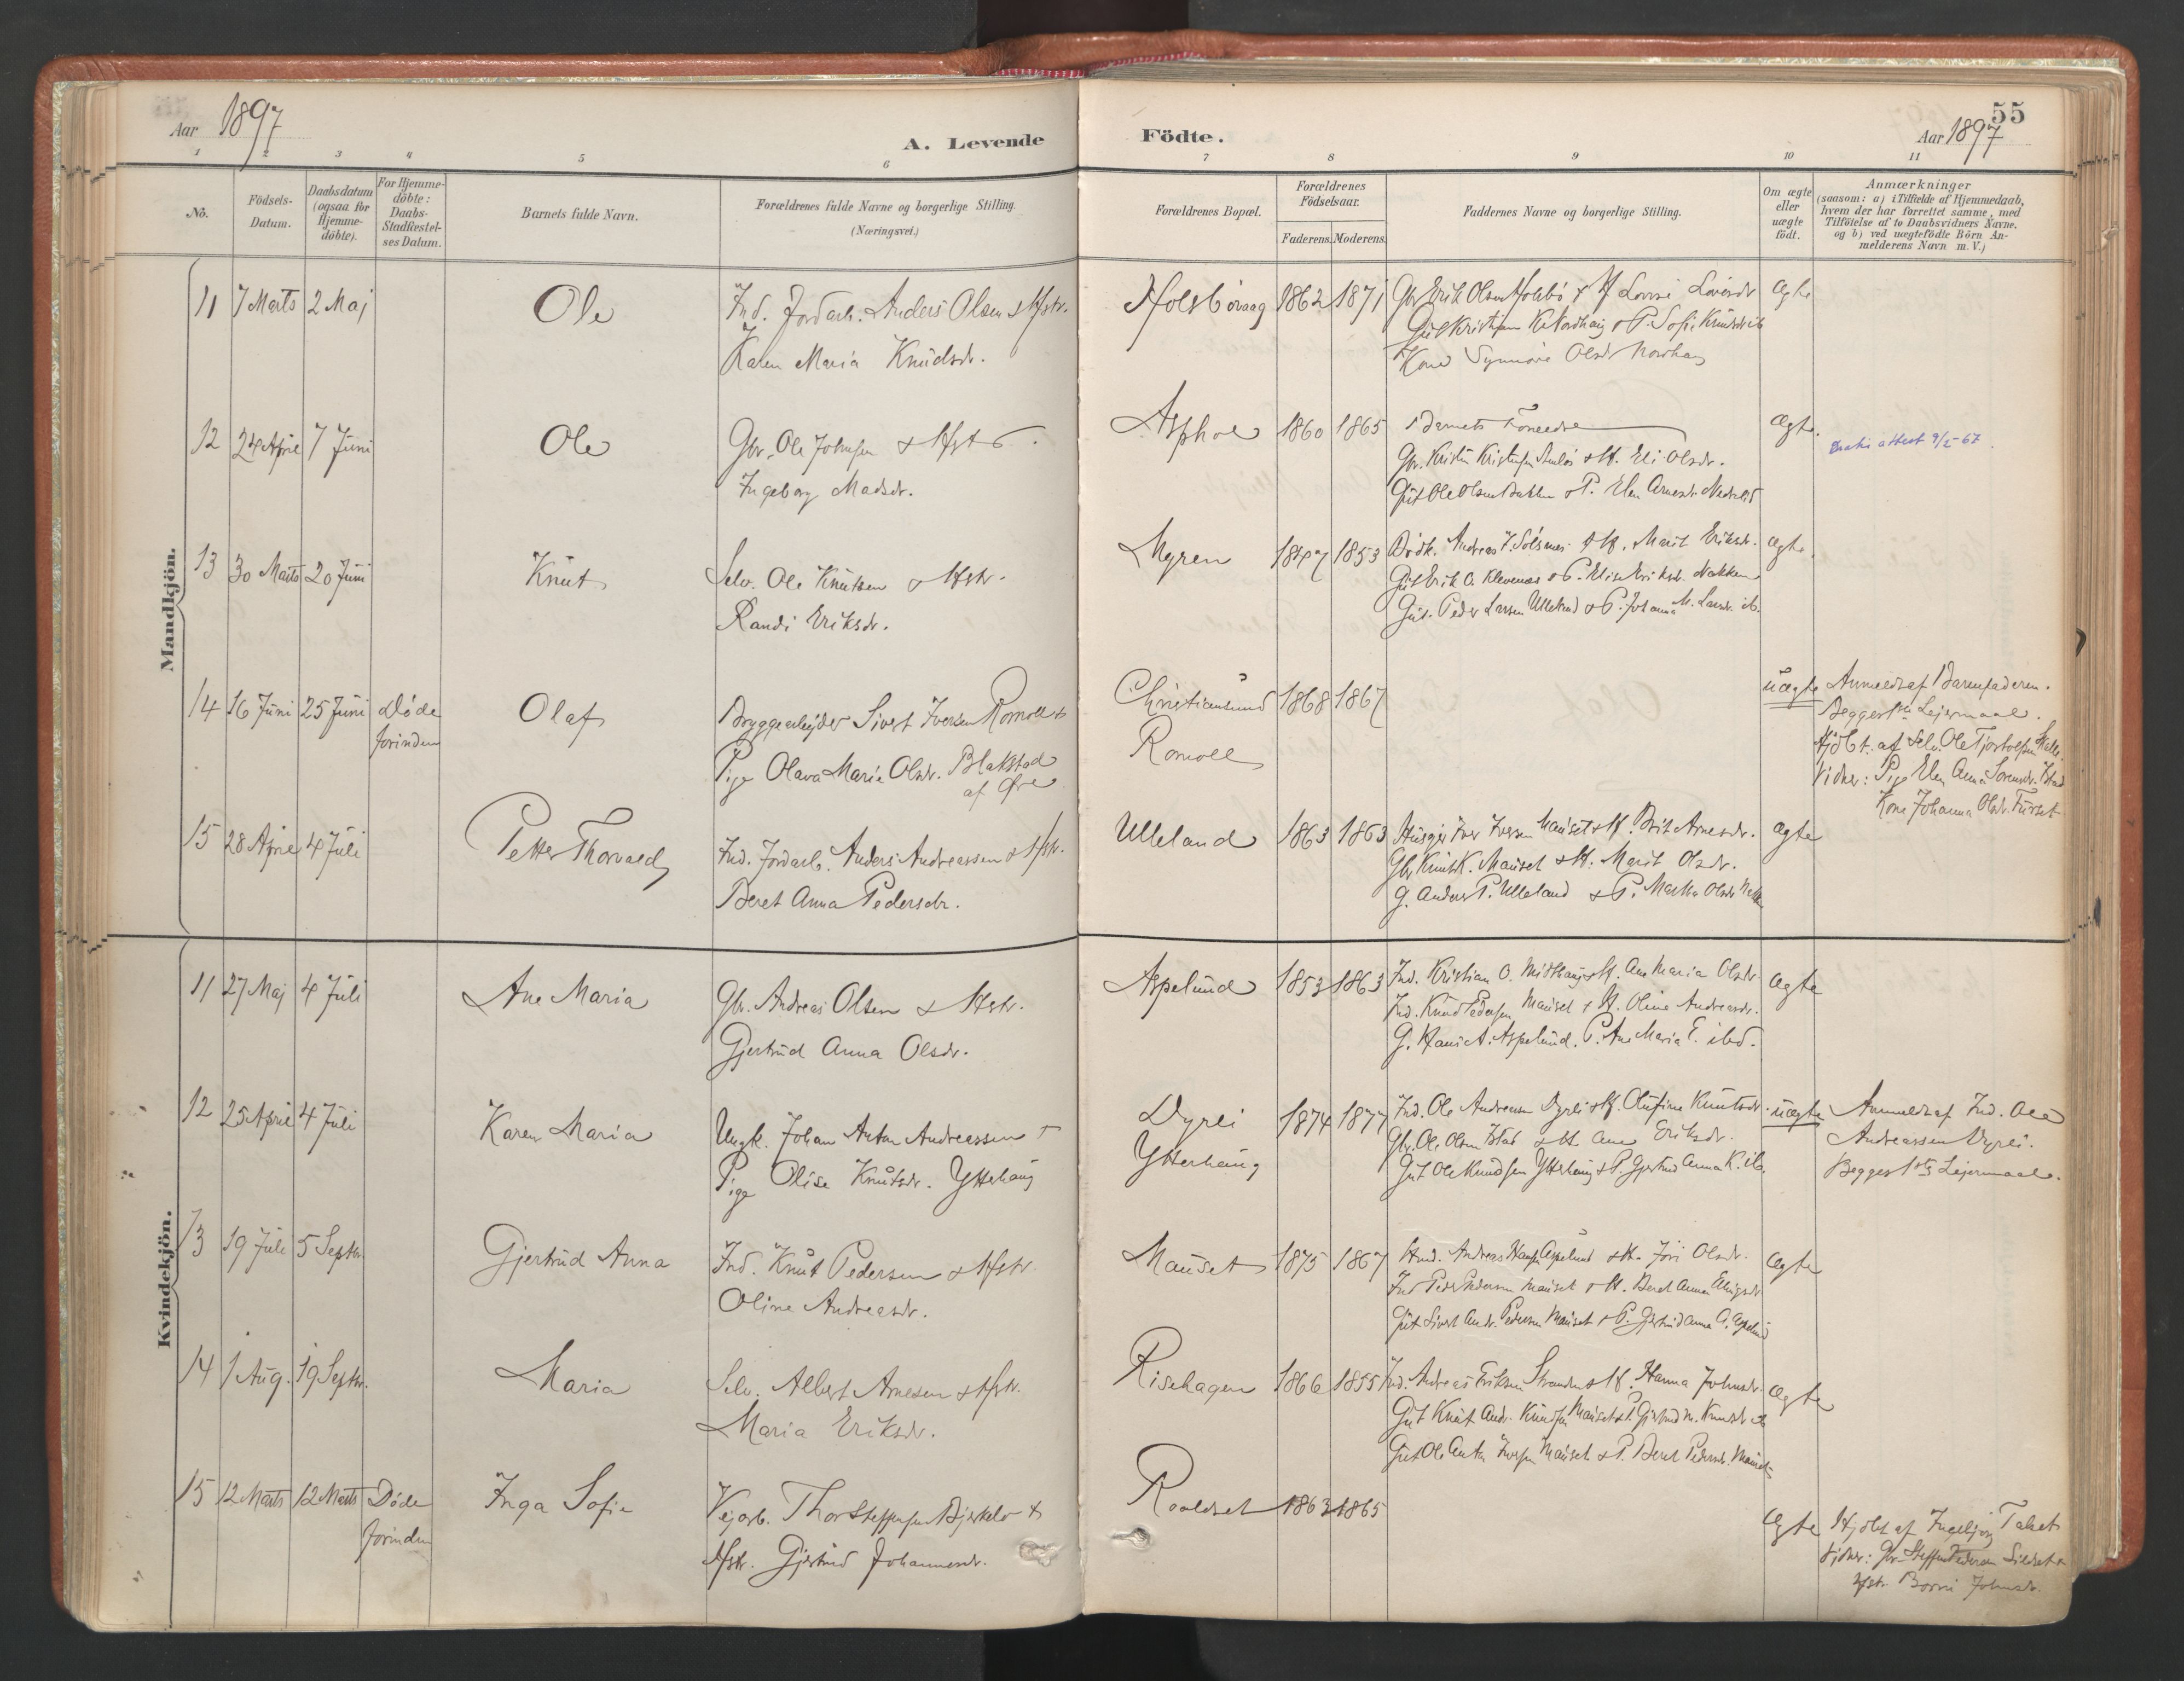 Aar 1897
A. Levende
Födte.
55
Aar 1897
1 2 3 4 5 6 7 8 9 10 11
No.
Födsels-
Datum.
Daabsdatum
(ogsaa for
Hjemme-
döbte).
For Hjemme-
döbte:
Daabs-
Stadfæstel-
ses Datum.
Barnets fulde Navn.
Forældrenes fulde Navne og borgerlige Stilling.
(Næringsvei.)
Forældrenes Bopæl.
Forældrenes
Födselsaar.
Faderens. Moderens.
Faddernes Navne og borgerlige Stilling.
Om ægte
eller
uægte
födt.
Anmærkninger
(saasom: a) i Tilfælde af Hjemmedaab,
hvem der har forrettet samme, med
Tilföielse af to Daabsvidners Navne.
og b) ved uægtefödte Börn An-
melderens Navn m. V.)
Mandkjön.
11 7 Marts 2 Maj
Ole
Ind. Jordarb. Anders Olsen & Hstr.
Karen Maria Knudsdr.
Holsbövaag 1862 1871
Gbr Erik Olsen Holsbö & H
Kone Synnöve Olsdr
ægte
12 24 April 7 Juni
Ole
Gbr. Ole Johnsen & Hstr.
Ingeborg Madsdr.
Asphol 1860 1865
Barnets Forældre
& H. Eli Olsdr.
ægte.
attest 9/2-67.
13 30 Marts 20 Juni
Knut
Selv. Ole Knutsen & Hstr.
Randi Eriksdr.
Myren 1847 1853
Andreas K. Solsnes & H. Marit Eriksdr.
Gut Erik O. Klevenæs & P. Elise Eriksdr. Nakken
Gut. Peder Larsen Ulleland & P. Johanna M. Larsdr. ib.
ægte.
14 16 Juni 25 Juni Døde
forinden
Olaf
Bryggearbejder Sivert Iversen Romoll &
Pige Olava Maria Olsdr. Blakstad
af Øre
Christiansund 1868 1867
Romoll
uægte
Anmeldt af Barnefaderen.
Begges 1ste Lejermaal.
Hjdbt. af Selv. Ole
Vidner: Pige Elen Anna
Kone Johanna Olsdr. Furset
15 28 April 4 Juli
Petter Thorvald
Ind. Jordarb. Anders Andreassen & Hstr.
Beret Anna Pedersdr.
Ulleland 1863 1863
Iver Iversen Mauset & H. Brit Arnesdr.
Gbr Knut K. Mauset & H. Marit Olsdr.
G. Anders P. Ulleland & P. Martha Olsdr
ægte
Kvindekjön.
11 27 Maj 4 Juli
Ane Maria
Gbr. Andreas Olsen & Hstr.
Gjertrud Anna Olsdr.
Aspelund 1853 1863
Ind. Kristian O. Midthaug & H. Ane Maria Olsdr
Ind. Knud Pedersen Mauset & H. Oline Andreasdr.
G. Hans A. Aspelund. P. Ane Maria E. ibd.
ægte
12 25 April 4 Juli
Karen Maria
Ungk. Johan Anton Andreassen &
Pige Olise Knutsdr. Ytterhaug
Dyrli 1874 1877
Ytterhaug
Ind. Ole Andreasen Dyrli & H. Olufine Knutsdr.
Gbr. Ole Olsen Istad & H. Ane Eriksdr.
Gut Ole Knudsen Ytterhaug & P. Gjertrud Anna K. ib.
uægte
Anmeldt af Ind. Ole
Andreassen Dyrli.
Begges 1ste Lejermaal.
13 19 Juli 5 Septbr.
Gjertrud Anna
Ind. Knut Pedersen & Hstr.
Oline Andreasdr.
Mauset 1875 1867
Andreas Hansen Aspelund & H. Jöri Olsdr.
Ind Peder Pedersen Mauset & H. Beret Anna Ellingsdr
Gut Sivert Andr. Pedersen Mauset & P. Gjertrud Anna A. Aspelund
ægte
14 1 Aug. 19 Septbr.
Maria
Selv. Albert Arnesen & Hstr.
Maria Eriksdr.
Risehagen 1866 1855
Ind. Andreas Eriksen Stranden & H. Hanna Johnsdr.
Gut Knut Andr. Knudsen Mauset & P. Gjertrud M. Knutsdr ib
Gut Ole Anton Iversen Mauset & P. Beret Pedersdr. Mauset
ægte
15 12 Marts 12 Marts Døde
forinden
Inga Sofie
Vejarb. Thor Steffensen Bjerkelv &
Hstr. Gjertrud Johannesdr.
Roaldset 1863 1865
ægte
Hjdbt af Ingebjörg Talset
Vidner: Gbr. Steffen Pedersen Sildset &
Hstr. Johnsdr.